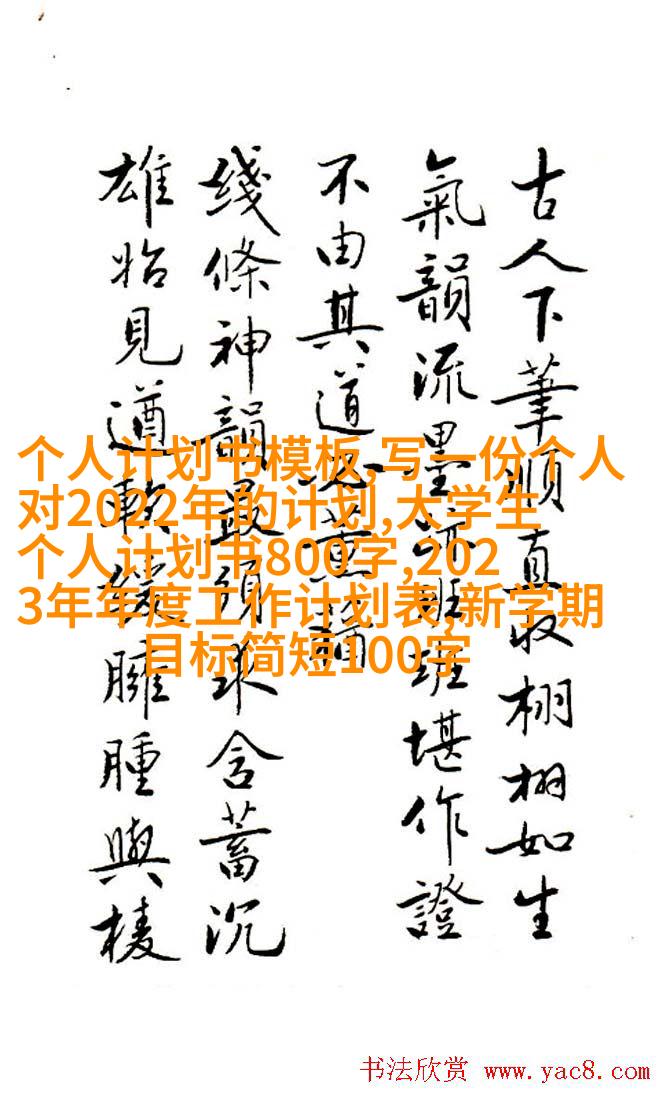 古人下筆順真収栩栩如生
氣韻流墨跡斑斑堪作證
不由其道
綫條神韻最須求含蓄沉
雄始見遒軟緩臃腫與棱
个人计划书模板,写一份个人
对2022年的计划,大学生
个人计划书800字,202
3年年度工作计划表,新学期
目标简短100字
书法欣赏 www.yac8.com